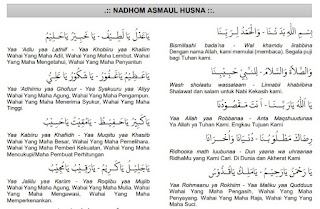 .:: NADHOM ASMAUL HUSNA ::.
بِسْمِ اللهِ بَدَئْنَا - وَالْحَمْدُ لِرَبِّنَا
Bismillaahi bada'na - Wal khamdu lirabbina
Dengan nama Allah, kami memulai (membaca). Segala puji
bagi Tuhan kami.
وَالصَّلَاةُ وَالسَّلَامُ - لِلنَّبِيِّ حَبِيْبِنَا
Wash sholaatu wassalaam - Linnabi khabibina
Shalawat dan salam untuk Nabi Kekasih kami.
يَا اللهُ يَا رَبَّنَا - أَنْتَ مَقْصُوْدُنَا
Yaa Allah yaa Robbanaa - Anta Maqshuudunaa
Ya Allah ya Tuhan kami. Engkau Tujuan Kami
رِضَاكَ مَطْلُوْبُنَا - دُنْيَانَا وَأُخْرَانَا
Ridhooka math luubunaa - Dun yaana wa uhraanaa
RidhaMu yang kami Cari. Di Dunia dan Akherat Kami
يَا رَحْمٰنُ يَا رَحِيْمُ - يَا مَلِكُ يَا قُدُّوْسُ
Yaa Rohmaanu ya Rokhim - Yaa Maliku yaa Qudduus
Wahai Yang Maha Pengasih, Wahai Yang Maha
Penyayang. Wahai Yang Maha Raja, Wahai Yang Yang
Maha Suci.
يَا عَدْلُ يَا لَطِيْفُ - يَا خَبِيْرُ يَا حَلِيْمُ
Yaa 'Adlu yaa Lathiif - Yaa Khobiiru yaa Khaliim
Wahai Yang Maha Adil, Wahai Yang Maha Lembut. Wahai
Yang Maha Mengetahui, Wahai Yang Maha Penyantun
يَا عَظِيْمُ يَا غَفُوْرُ - يَا شَكُوْرُ يَا عَلِيُّ
Yaa 'Adhiimu yaa Ghofuur - Yaa Syakuuru yaa 'Aliyy
Wahai Yang Maha Agung, Wahai Yang Maha Pengampun.
Wahai Yang Maha Menerima Syukur, Wahai Yang Maha
Tinggi.
يَا كَبِيْرُ يَا حَفِيْظُ - يَا مُقِيْتُ يَا حَسِيْبُ
Yaa Kabiiru yaa Khafiidh - Yaa Muqiitu yaa Khasib
Wahai Yang Maha Besar, Wahai Yang Maha Pemelihara.
Wahai Yang Maha Pemberi Kekuatan, Wahai Yang Maha
Mencukupi/Maha Pembuat Perhitungan
يَا جَلِيْلُ يَا كَرِيْمُ - يَا رَقِيْبُ يَا مُجِيْبُ
Yaa Jaliilu yaa Kariim - Yaa Roqiibu yaa Mujiib
Wahai Yang Maha Agung, Wahai Yang Maha Mulia. Wahai
Yang Maha Mengawasi, Wahai Yang Maha
Memperkenankan